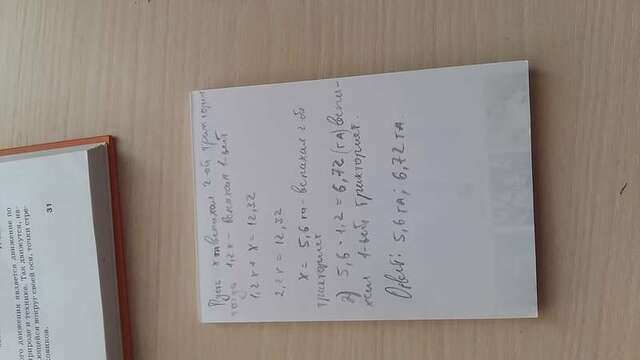 Пусть x га вспахал 2-ой тракторист
тогда 1,2x - вспахал 1-ый
1,2x + x = 12,32
2,2x = 12,32
x = 5,6 га - вспахал 2-ой
тракторист
2) 5,6 · 1,2 = 6,72 (га) вспа-
хал 1-ый тракторист.
Ответ: 5,6 га; 6,72 га
ого движения является движение по
природе и технике. Так движутся, на-
ющейся вокруг своей оси, точки стре-
31